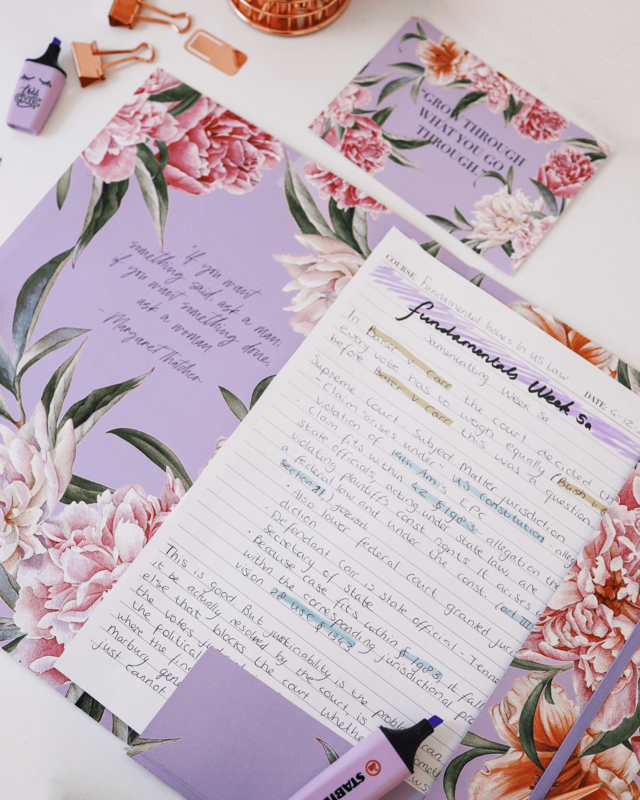 "GROW THROUGH
WHAT YOU GO
THROUGH."
"if you want
something said, ask a man,
if you want something done,
ask a woman."
- Margaret Thatcher
COURSE Fundamental Issues in US Law
DATE 4-12
fundamentals Week 5a
Samenvatting Week 5a
In Baker v Carr the court decided
every vote has to weigh equally (Bush v
before Baker v Carr this was a question
Supreme Court - Subject Matter jurisdiction
- Claim arises under US Constitution - alleg
violation of 14th Am's EPC
- claim fits within 42 § 1983 - allegation
state officials, acting under state law, are
violating plaintiffs const rights. It arises
a federal law and under the const. (art III
section 2)
also lower federal court granted juris
diction
· Defendant Carr is state official - Tenne
Secretary of state
· Because case fits within § 1983, it fall
within the corresponding jurisdictional pro
vision 28 USC § 1343
This is good. But justiciability is the problem, can
it be actually resolved by the court
else that blocks the court
the voters, the court is
the political
where the
Marbury
just cannot
STABI